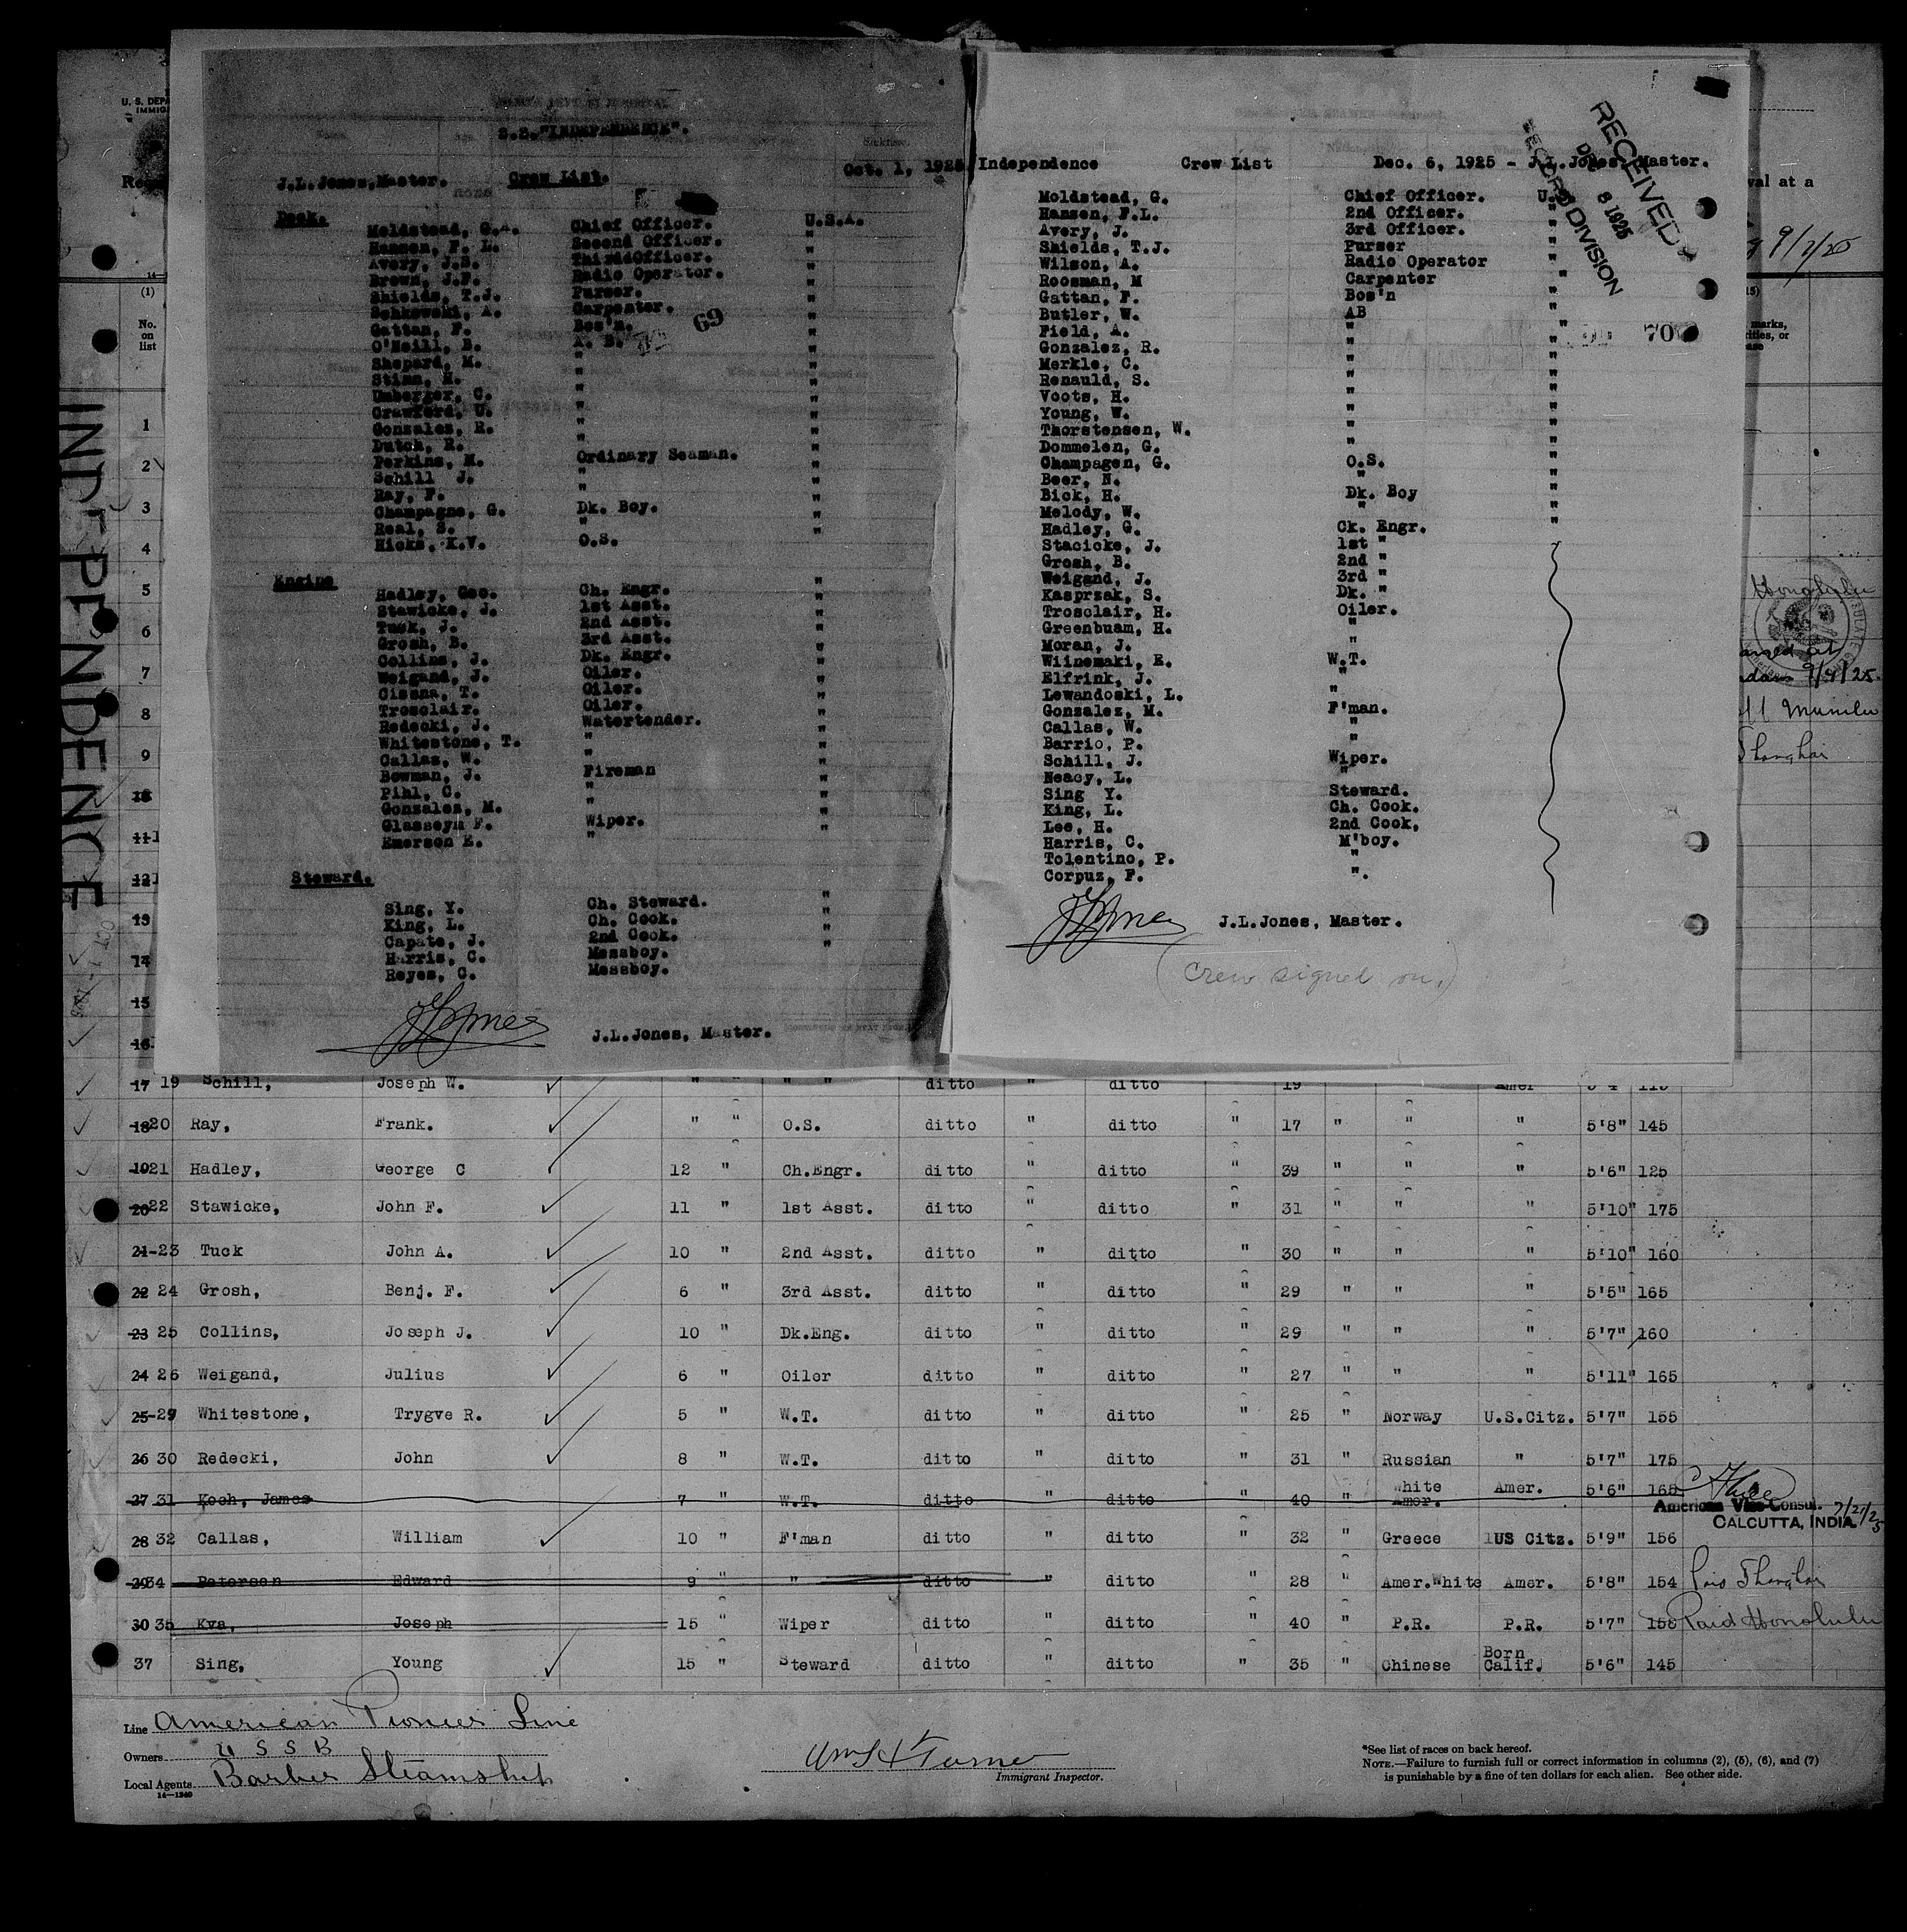 S.S."INDEPENDENCE".
Oct. 1, 1925
J.L.Jones,Master. Crew List.
none
Deck.
Moldstead, G.A. Chief Officer. U.S.A.
Hansen, F. L. Second Officer. "
Avery, J.S. ThirddOfficer. "
Brown, J.F. Radio Operator. "
Shields, T.J. Purser. "
Sehkowski, A. Carpenter. "
Gattan, F. Bos'n. " 69
O'Neill, B. A. B. "
Shepard, M. " "
Stimn, H. " "
Umberger, C. " "
Crawford, U. " "
Gonzales, R. " "
Dutch, R. " "
Perkins, M. Ordinary Seaman. "
Schill J. " "
Ray, F. " "
Champagne, G. Dk. Boy. "
Real, S. " "
Hicks, K.V. O.S.
Engine
Hadley, Geo. Ch. Engr. "
Stawicke, J. 1st Asst. "
Tuck, J. 2nd Asst. "
Grosh, B. 3rd Asst. "
Collins, J. Dk. Engr. "
Weigand, J. Oiler. "
Cissna, T. Oiler. "
Trosclair. Oiler. "
Redecki, J. Watertender. "
Whitestone, T. " "
Callas, W. " "
Bowman, J. Fireman "
Pihl, C. " "
Gonzales, M. " "
Glasseym F. Wiper. "
Emerson E. "
Steward.
Sing, Y. Ch. Steward. "
King, L. Ch. Cook. "
Capate, J. 2nd Cook. "
Harris, C. Messboy. "
Reyes, C. Messboy.
JLJones
J.L.Jones, Master.
Independence Crew List Dec. 6, 1925 - J.L.Jones, Master.
RECEIVED
DE 8 1925
RECORD DIVISION
Moldstead, G. Chief Officer. U.S.
Hansen, F.L. 2nd Officer. "
Avery, J. 3rd Officer. "
Shields, T.J. Purser "
Wilson, A. Radio Operator "
Roosman, M Carpenter "
Gattan, F. Bos'n "
Butler, W. AB "
Field, A. " " 70
Gonzalez, R. " "
Merkle, C. " "
Renauld, S. " "
Voots, H. " "
Young, W. " "
Thorstensen, W. " "
Dommelen, G. " "
Champagen, G. O.S. "
Beer, N. " "
Bick, H. Dk. Boy "
Melody, W. " "
Hadley, G. Ck. Engr. "
Stacicke, J. 1st "
Grosh, B. 2nd "
Weigand, J. 3rd "
Kasprzak, S. Dk. "
Trosclair, H. Oiler.
Greenbuam, H. "
Moran, J. "
Wiinemaki, E. W.T.
Elfrink, J. "
Lewandoski, L. "
Gonzalez, M. F'man.
Callas, W. "
Barrio, P. "
Schill, J. Wiper.
Neacy, L. "
Sing Y. Steward.
King, L. Ch. Cook.
Lee, H. 2nd Cook,
Harris, C. M'boy.
Tolentino, P. "
Corpuz, F. ".
JLJones
J.L.Jones, Master.
(Crew signed on.)
INDEPENDENCE
U. S. DEPA
IMMIG
val at a
9/2/25
(1)
No.
on
list
marks,
Honolulu
9/9/25.
Shanghai
1
2
3
4
5
6
7
8
9
10
11
12
13
14
15
16
17 19 Schill, Joseph W. " " " " ditto " ditto 19 Amer 5'4"
18 20 Ray, Frank. " " O.S. ditto " ditto " 17 " " " 5'8" 145
19 21 Hadley, George C 12 " Ch.Engr. ditto " ditto " 39 " " " 5'6" 125
20 22 Stawicke, John F. 11 " 1st Asst. ditto " ditto " 31 " " " 5'10" 175
21-23 Tuck John A. 10 " 2nd Asst. ditto " ditto " 30 " " " 5'10" 160
22 24 Grosh, Benj. F. 6 " 3rd Asst. ditto " ditto " 29 " " " 5'5" 165
23 25 Collins, Joseph J. 10 " Dk.Eng. ditto " ditto " 29 " " " 5'7" 160
24 26 Weigand, Julius 6 " Oiler ditto " ditto " 27 " " " 5'11" 165
25-29 Whitestone, Trygve R. 5 " W.T. ditto " ditto " 25 " Norway U.S.Citz. 5'7" 155
26 30 Redecki, John 8 " W.T. ditto " ditto " 31 " Russian " 5'7" 175
27 31 Koch, James 7 " W.T. ditto " ditto " 40 " White Amer. Amer. 5'6" 165
American Vice Consul.
CALCUTTA, INDIA 7/21/25
28 32 Callas, William 10 " F'man ditto " ditto " 32 " Greece US Citz. 5'9" 156
29 34 Petersen Edward 9 " " ditto " ditto " 28 " Amer.White Amer. 5'8" 154 Paid Shanghai
30 35 Kva, Joseph 15 " Wiper ditto " ditto " 40 " P.R. P.R. 5'7" 155 Paid Honolulu
37 Sing, Young 15 " Steward ditto " ditto " 35 " Chinese Born Calif. 5'6" 145
Line American Pioneer Line
Owners U S S B
Local Agents Barber Steamship
14—1240
Wm H Turner
Immigrant Inspector.
*See list of races on back hereof.
NOTE.—Failure to furnish full or correct information in columns (2), (5), (6), and (7)
is punishable by a fine of ten dollars for each alien. See other side.